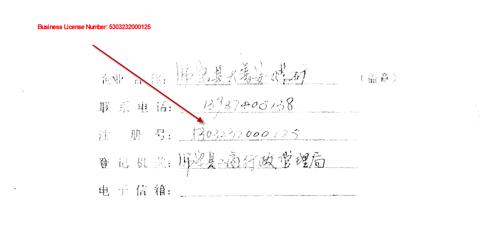 Business License Number: 5303232000125
企业名称: 师宗县大 煤矿 (盖章)
联系电话: 13987405138
注册号: 5303232000125
登记机关: 师宗县工商行政管理局
电子信箱: